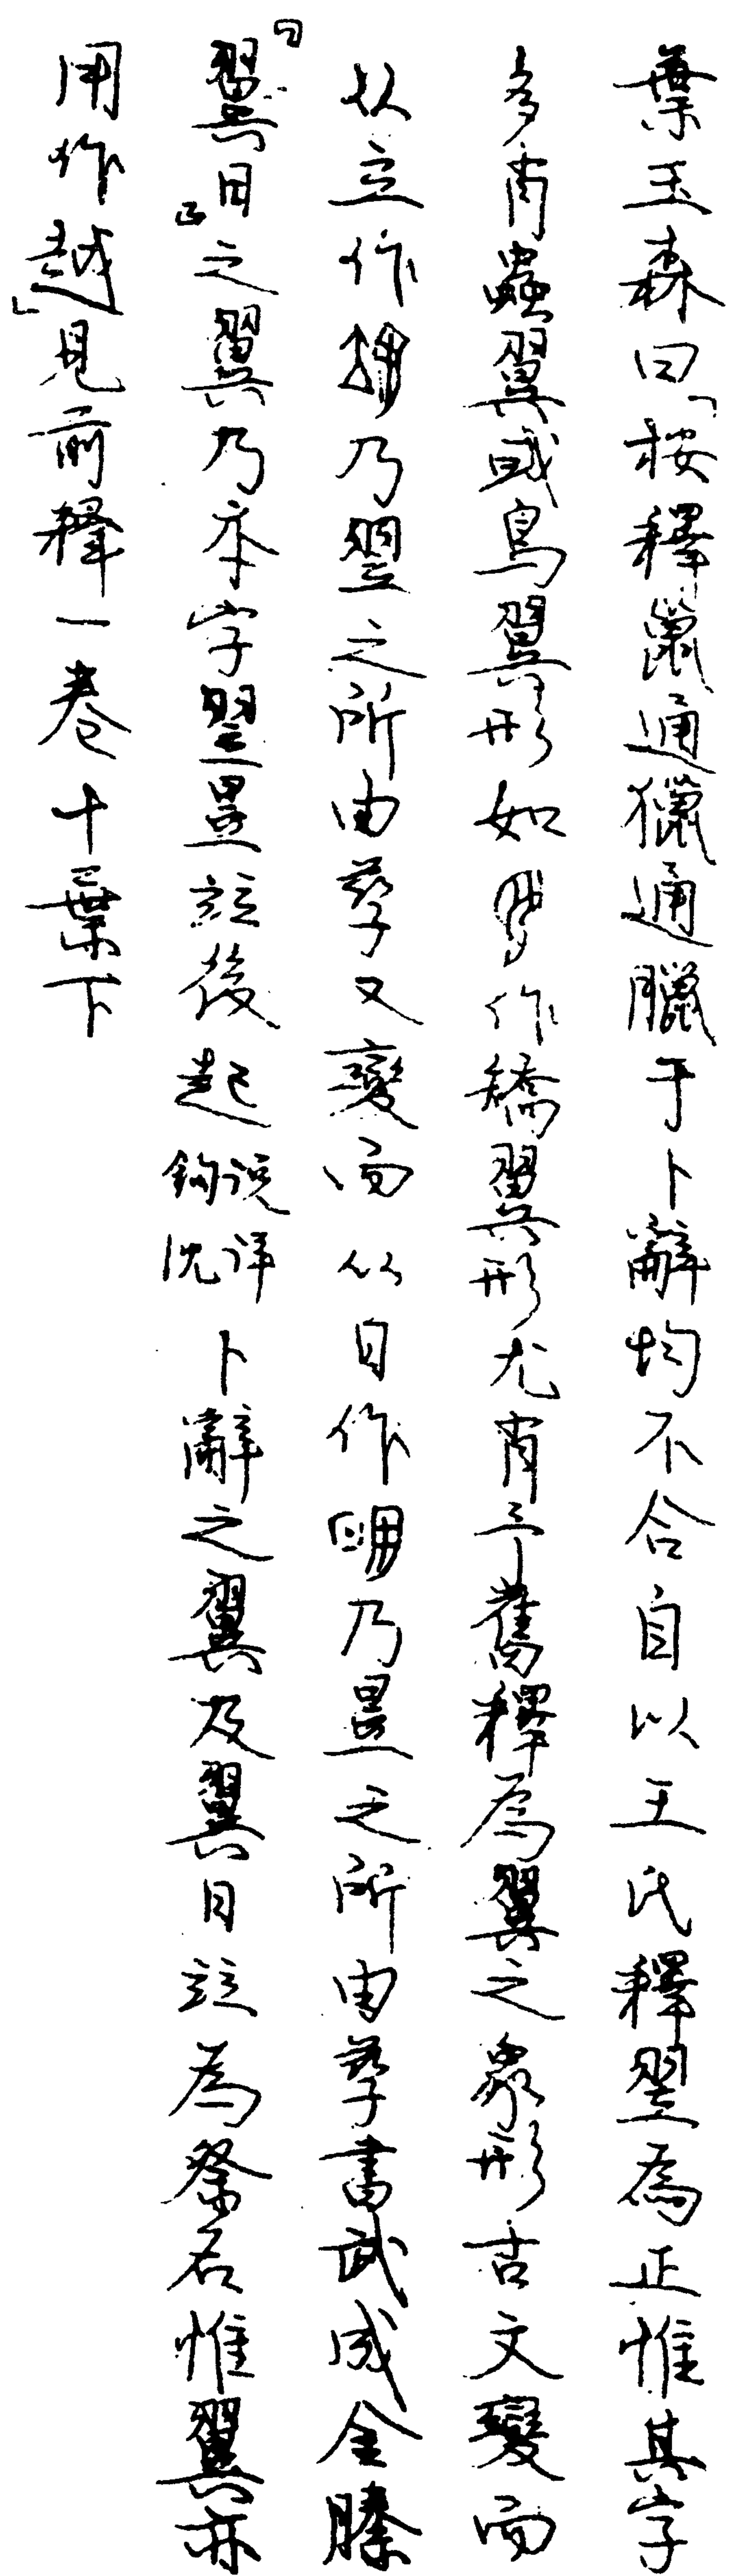 葉玉森曰「桉釋巤通獵通臘于卜辭均不合自以王氏釋翌為正惟其字
多肖蟲翼或鳥翼形如作矯翼形尤肖予舊釋為翼之象形古文變而
从立作乃翌之所由孳又變而从日作乃昱之所由孳書武成金縢
『翼日』之翼乃本字翌昱竝後起說詳鉤沈卜辭之翼及翼日竝為祭名惟翼亦
用作越」見前釋一卷十葉下